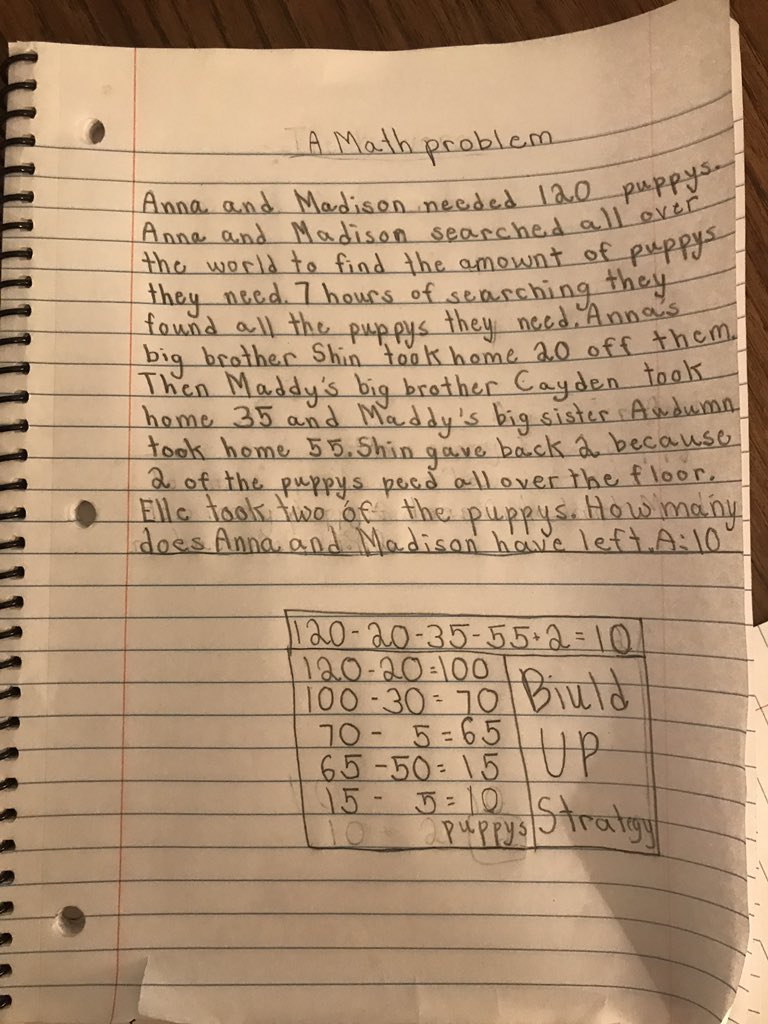 A Math problem
Anna and Madison needed 120 puppys.
Anna and Madison searched all over
the world to find the amownt of puppys
they need. 7 hours of searching they
found all the puppys they need. Anna's
big brother Shin took home 20 off them.
Then Maddy's big brother Cayden took
home 35 and Maddy's big sister Audumn
took home 55. Shin gave back 2 because
2 of the puppys peed all over the floor.
Elle took two of the puppys. How many
does Anna and Madison have left. A:10
120-20-35-55+2=10
120-20=100
100-30=70
70- 5=65
65-50=15
15- 5=10
puppys
Biuld
UP
Strategy